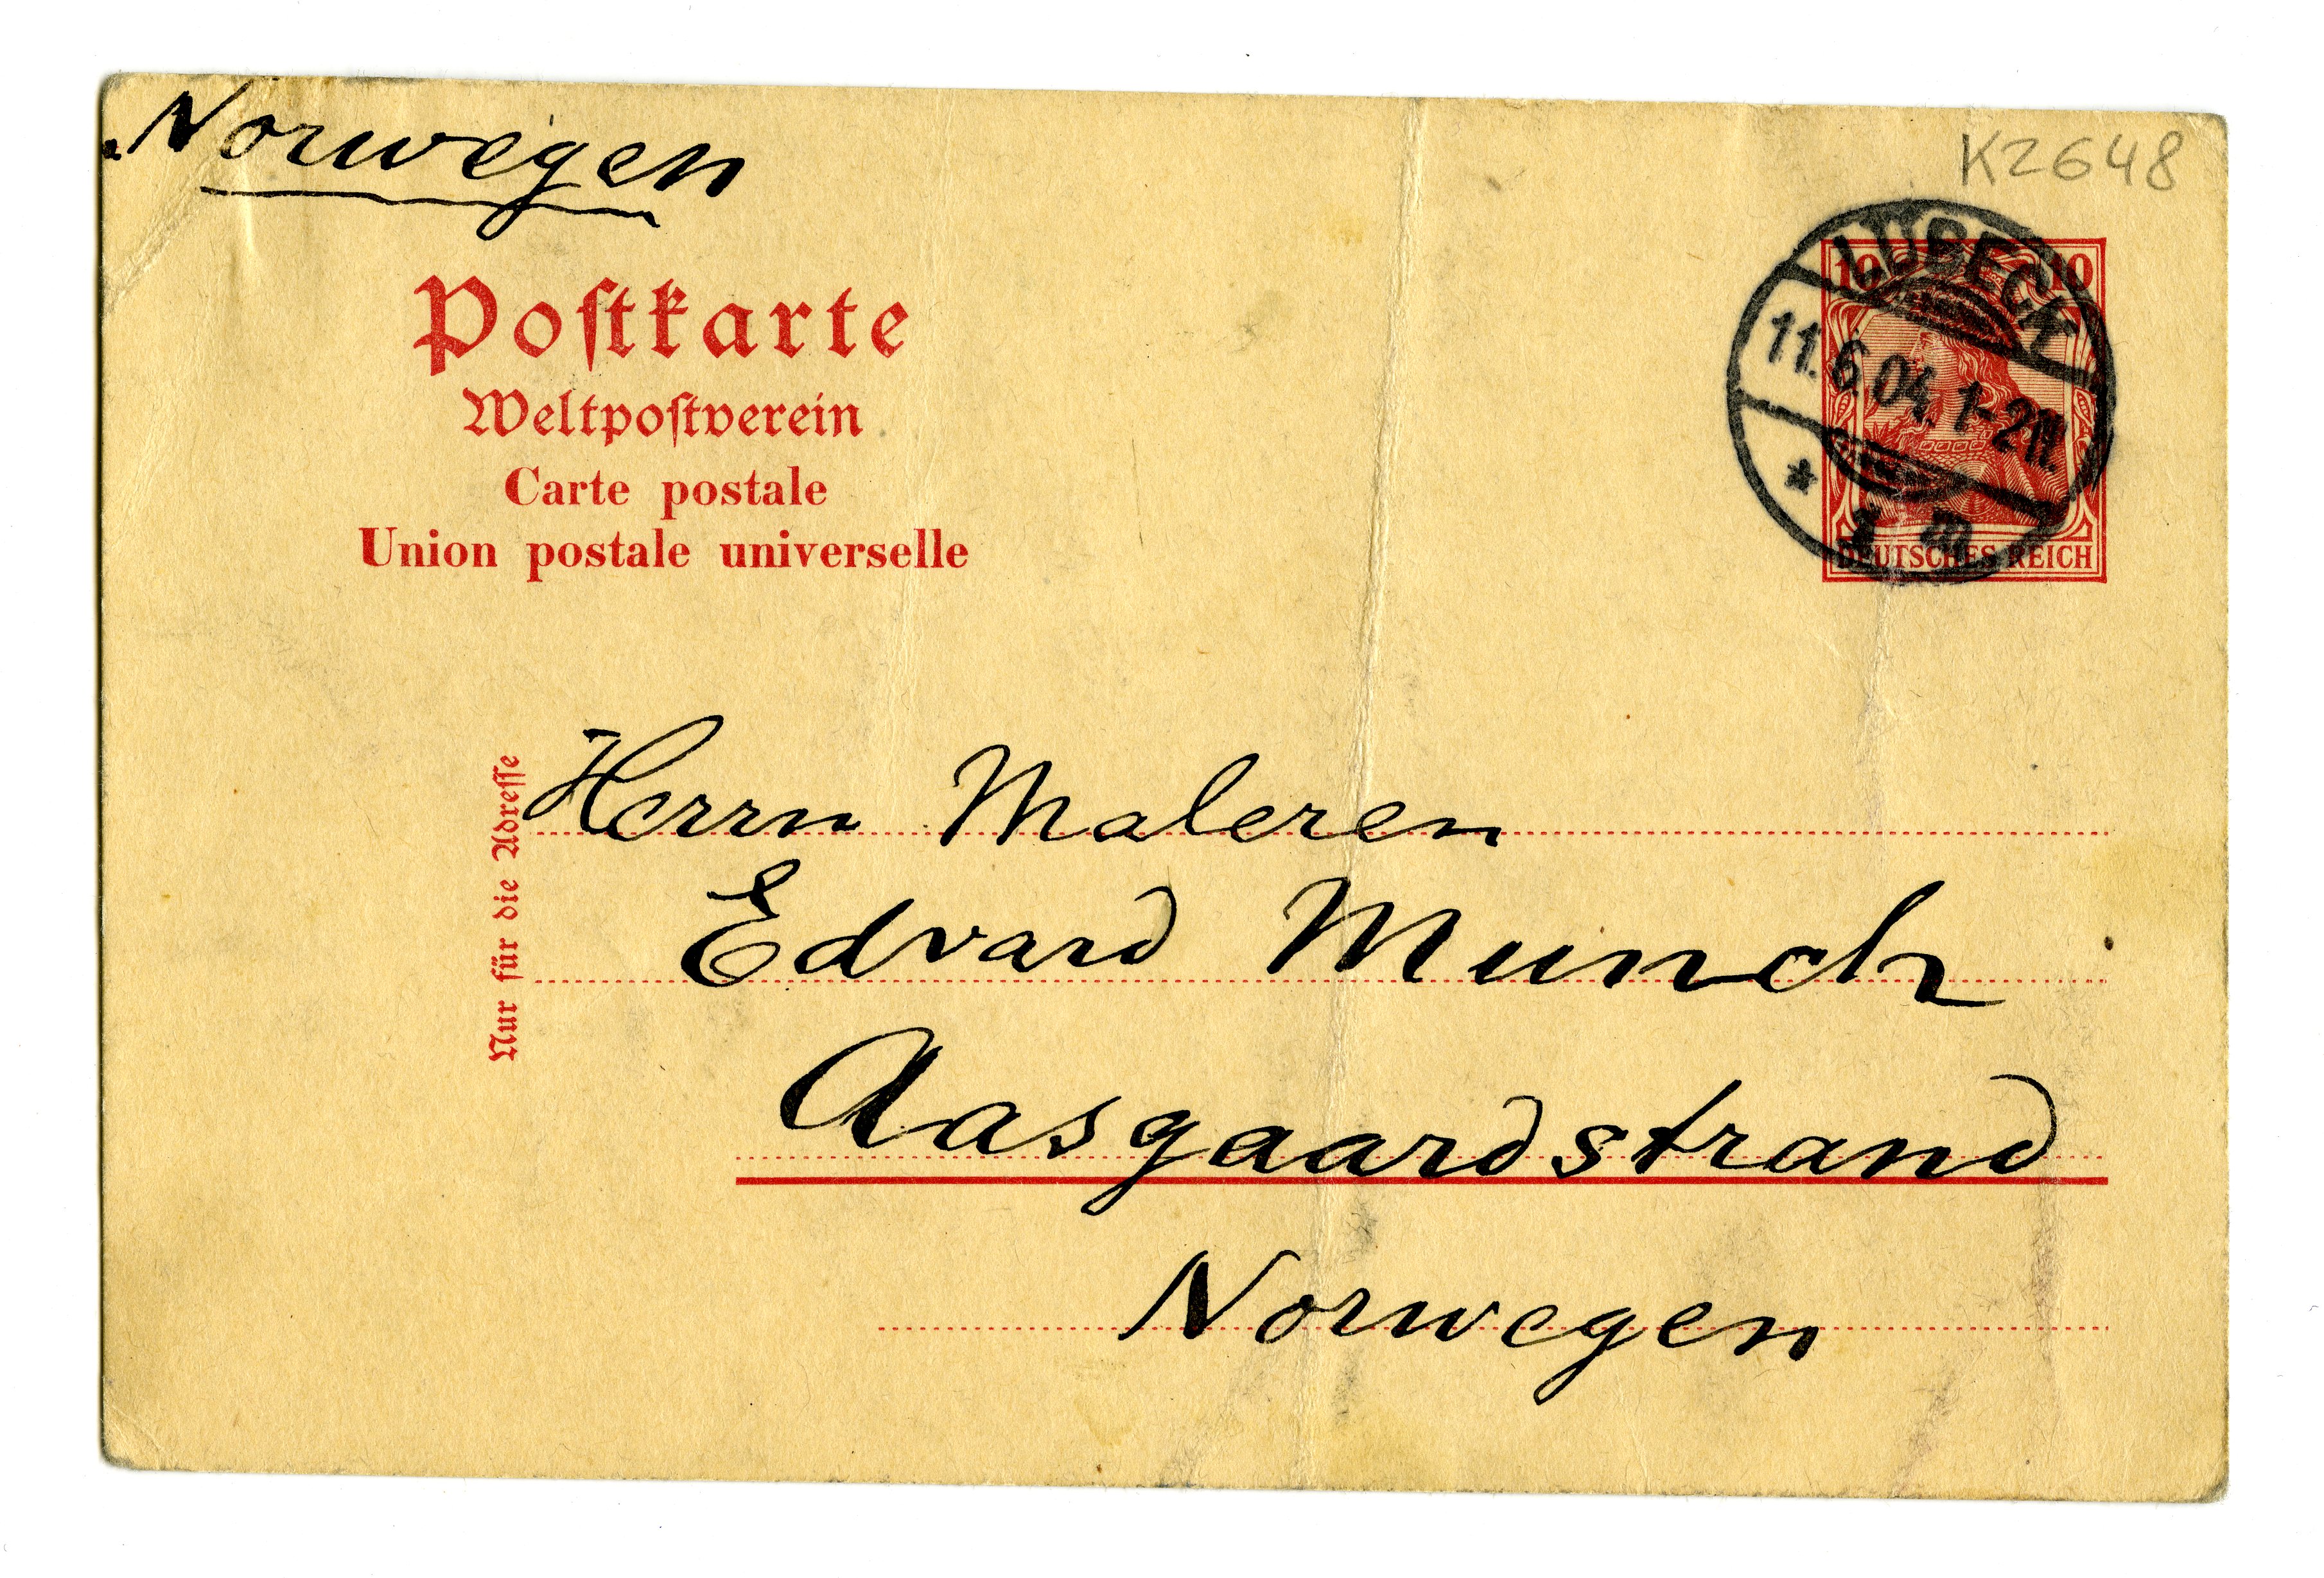 Norwegen
K2648
Postkarte
Weltpostverein
Carte postale
Union postale universelle
10 10
LÜBECK
11.6.04. 1-2N.
* 1 m
DEUTSCHES REICH
Nur für die Adresse
Herrn Maleren
Edvard Munch
Aasgaardstrand
Norwegen